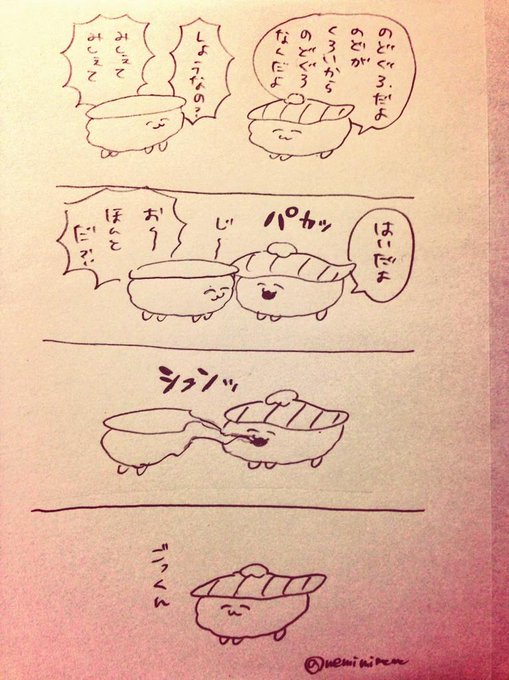 のどぐろだよ
のどが
くろいから
のどぐろ
なんだよ
しょうなの?
みしぇて
みしぇて
はいだよ
パカッ
じ〜
お〜
ほんと
だぁ!
シュンッ
ごっくん